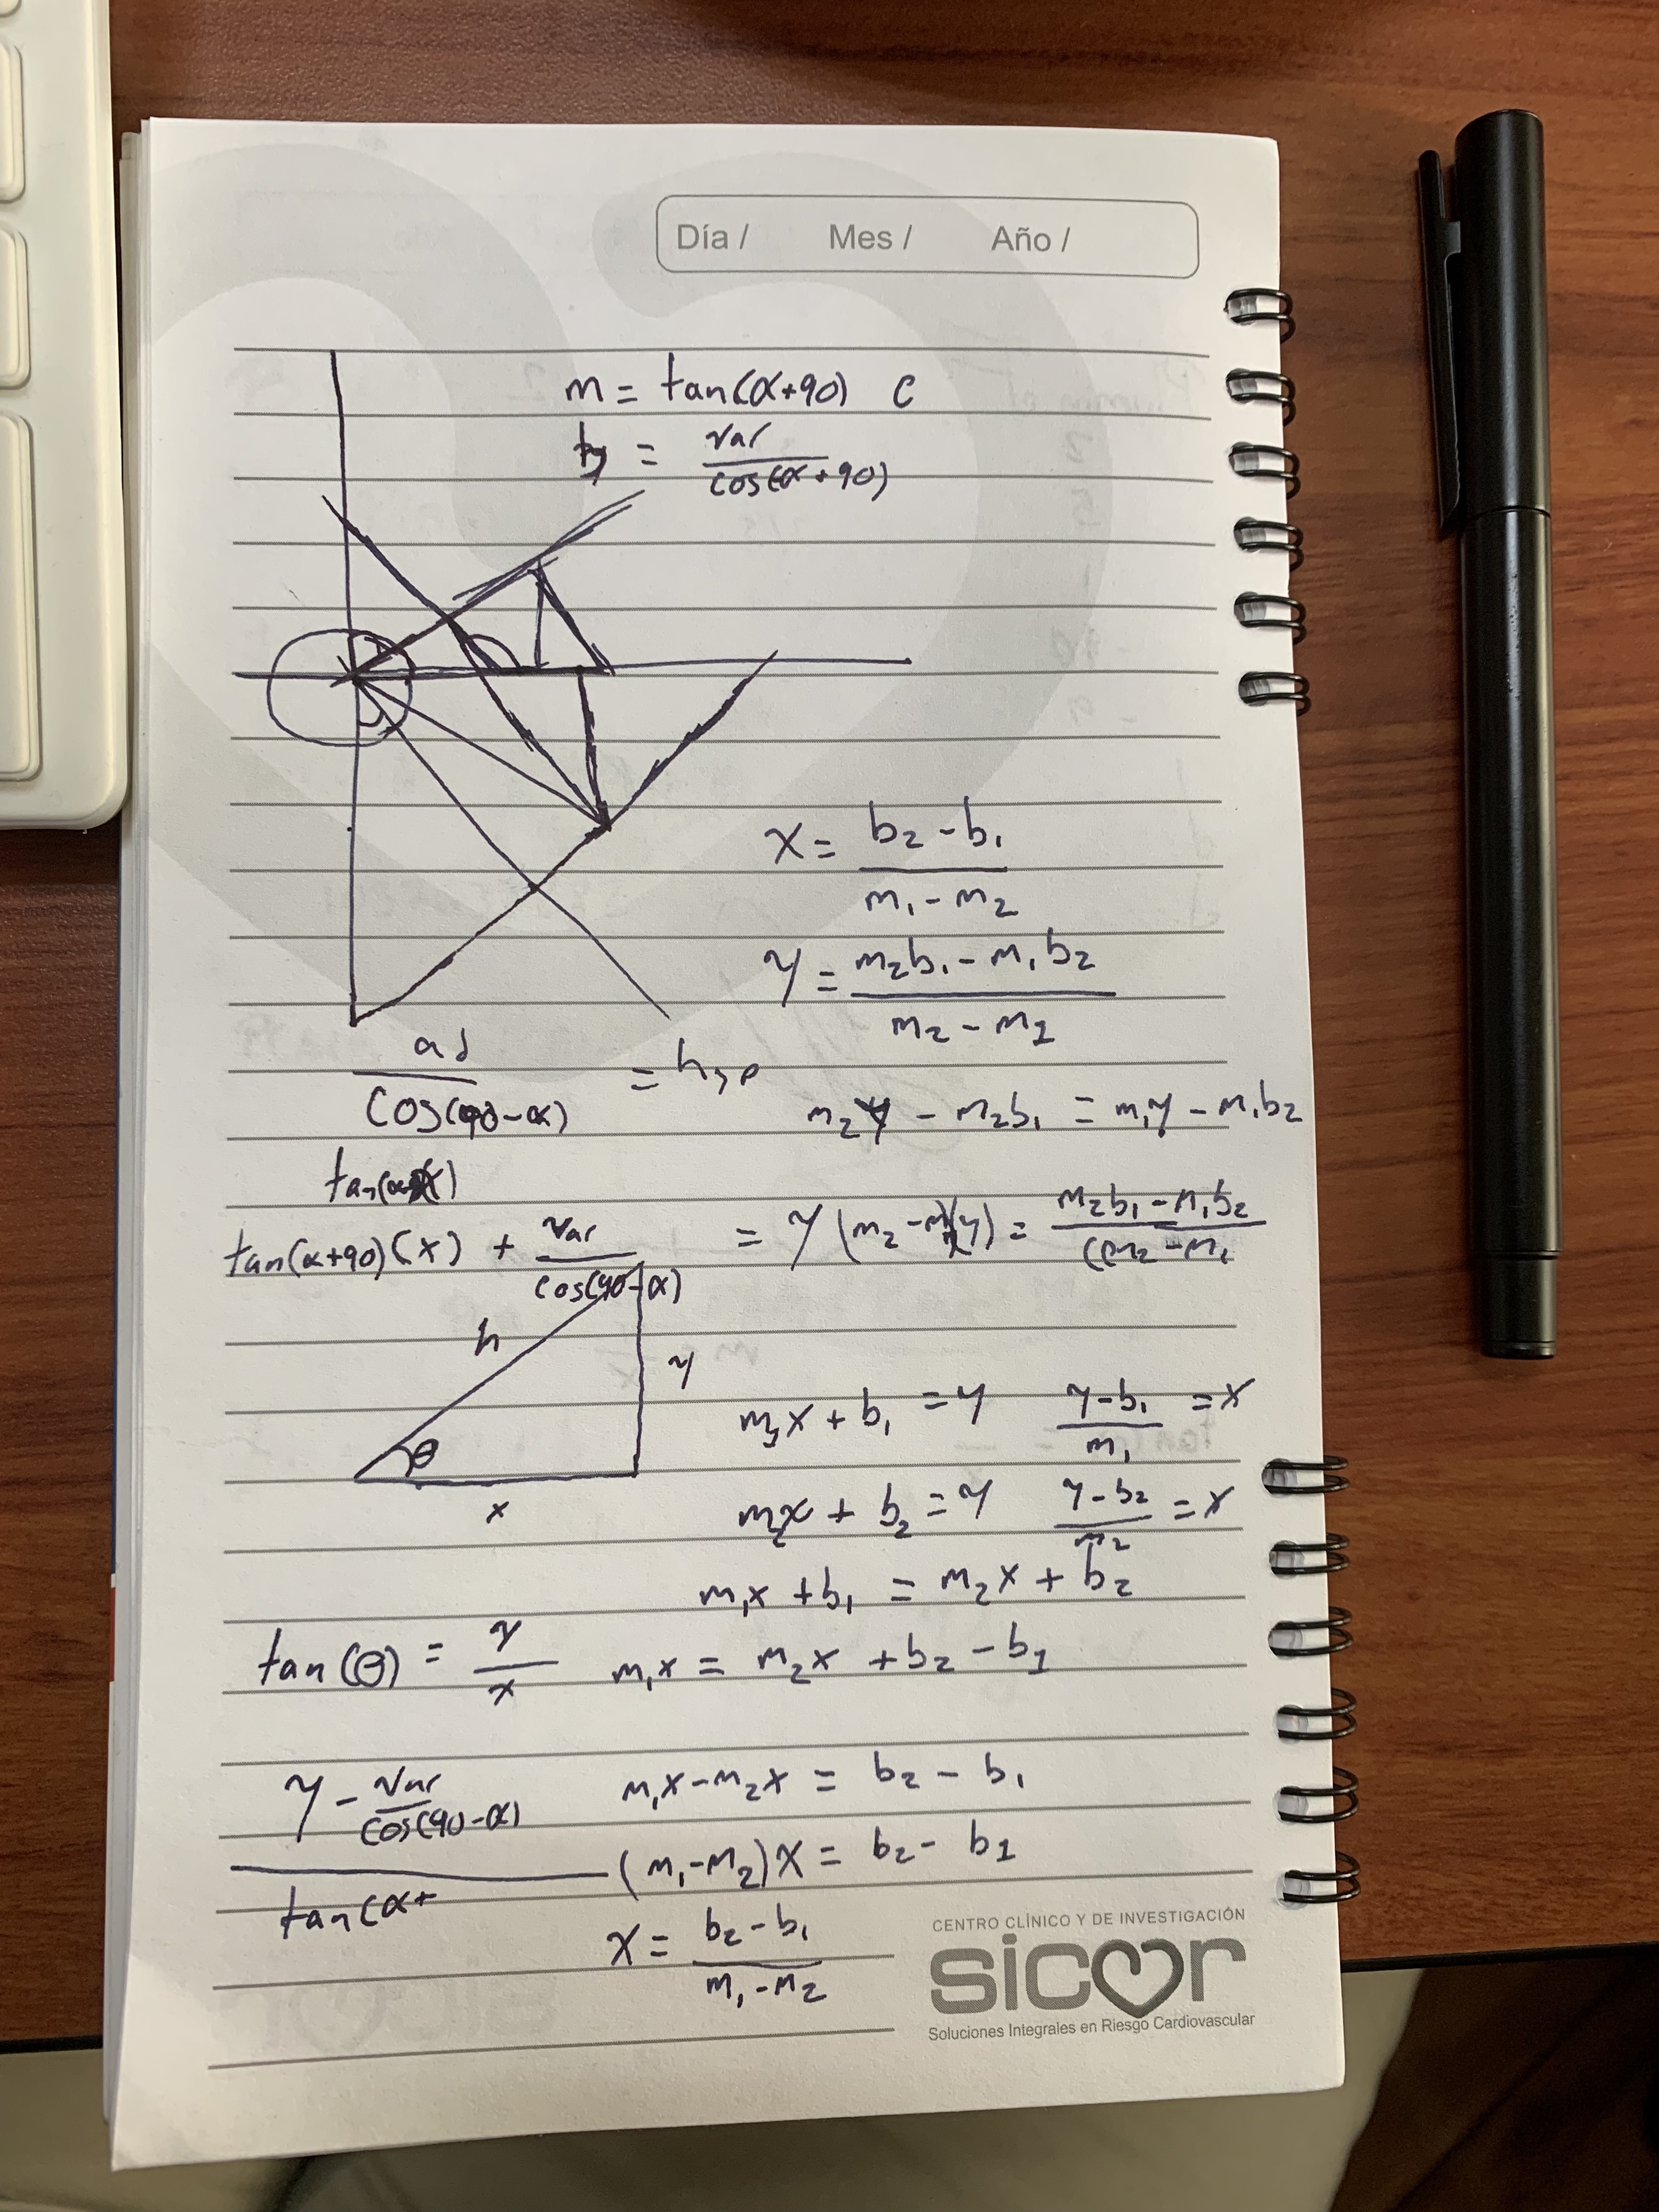 Día / Mes / Año /
m = tan(α+90) c
b = var / cos(α+90)
x = b₂ - b₁ / m₁ - m₂
y = m₂b₁ - m₁b₂ / m₂ - m₁
ad / cos(90-α) = hyp
m₂y - m₂b₁ = m₁y - m₁b₂
tan(α+90)(x) + var / cos(90-α) = y
(m₂ - m₁)(y) = m₂b₁ - m₁b₂ / (m₂ - m₁
h
y
θ
x
m₁x + b₁ = y y-b₁ / m₁ = x
m₂x + b₂ = y y-b₂ / m₂ = x
m₁x + b₁ = m₂x + b₂
tan(θ) = y / x
m₁x = m₂x + b₂ - b₁
y - var / cos(90-α)
tan(α+
m₁x - m₂x = b₂ - b₁
(m₁-m₂)x = b₂ - b₁
x = b₂ - b₁ / m₁ - m₂
CENTRO CLÍNICO Y DE INVESTIGACIÓN
sicor
Soluciones Integrales en Riesgo Cardiovascular